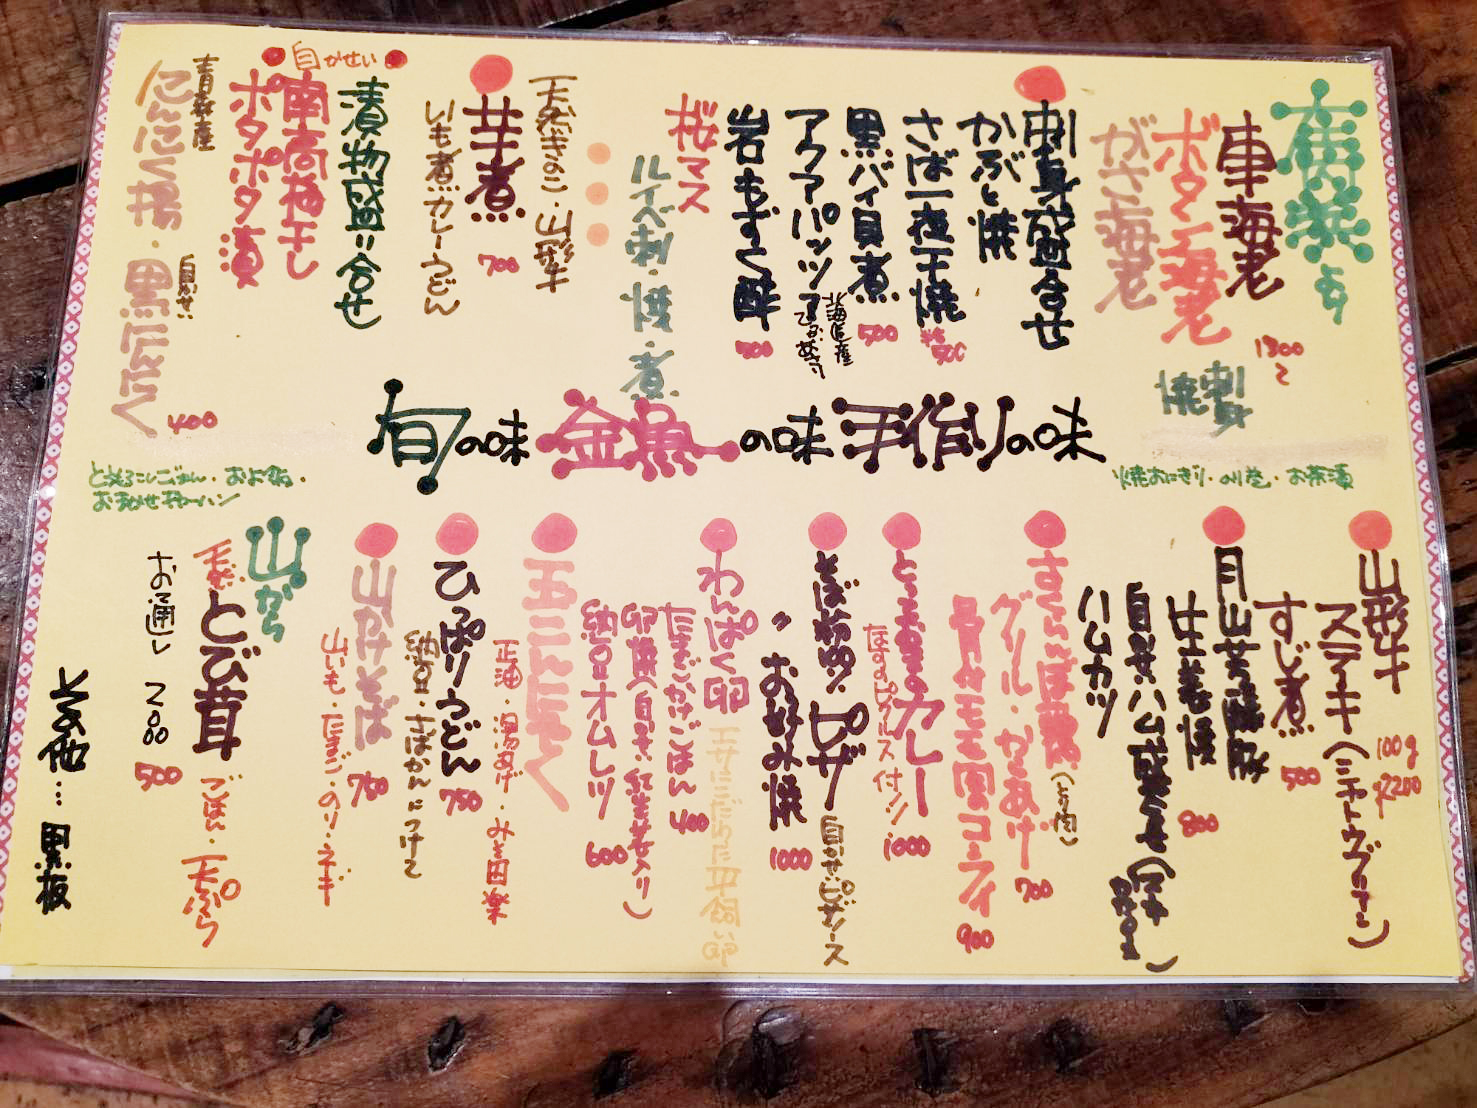 車海老
ボタン海老
がさ海老
1800
刺身
焼
刺身盛合せ
かぶと焼
さば一夜干焼
500
黒バイ貝煮
500
アクアパッツァ
北海道産
岩もずく酢
500
桜マス
ルイベ刺・焼・煮
天然きのこ・山形牛
芋煮
700
いも煮カレーうどん
漬物盛り合せ
自かせい
南高梅干し
ポタポタ漬
青森産
にんにく揚・黒にんにく
自かせい
400
旬の味
金魚の味
の味
焼おにぎり・のり巻・お茶漬
おまかせチャーハン
山形牛
ステーキ(シャトウブリアン)
100g
¥2200
すじ煮
500
月山芳醸豚
生姜焼
800
自家製ハム盛合せ
ハムカツ
さくらんぼ鶏
(もり肉)
グリル・からあげ
700
骨付モモ
900
とっておきのカレー
なすのピクルス付!
1000
ピザ
自かせいピザソース
〃 お好み焼
1000
わんぱく卵
エサにこだわった平飼い卵
たまごかけごはん
400
卵焼(自かせい紅生姜入り)
納豆オムレツ
600
玉こんにゃく
正油・湯あげ・みそ田楽
ひっぱりうどん
750
納豆・さばかんにつけて
山かけそば
750
山いも・たまご・のり・ネギ
山から
天然とび茸
ごはん・天ぷら
500
お通し 200
その他…黒板